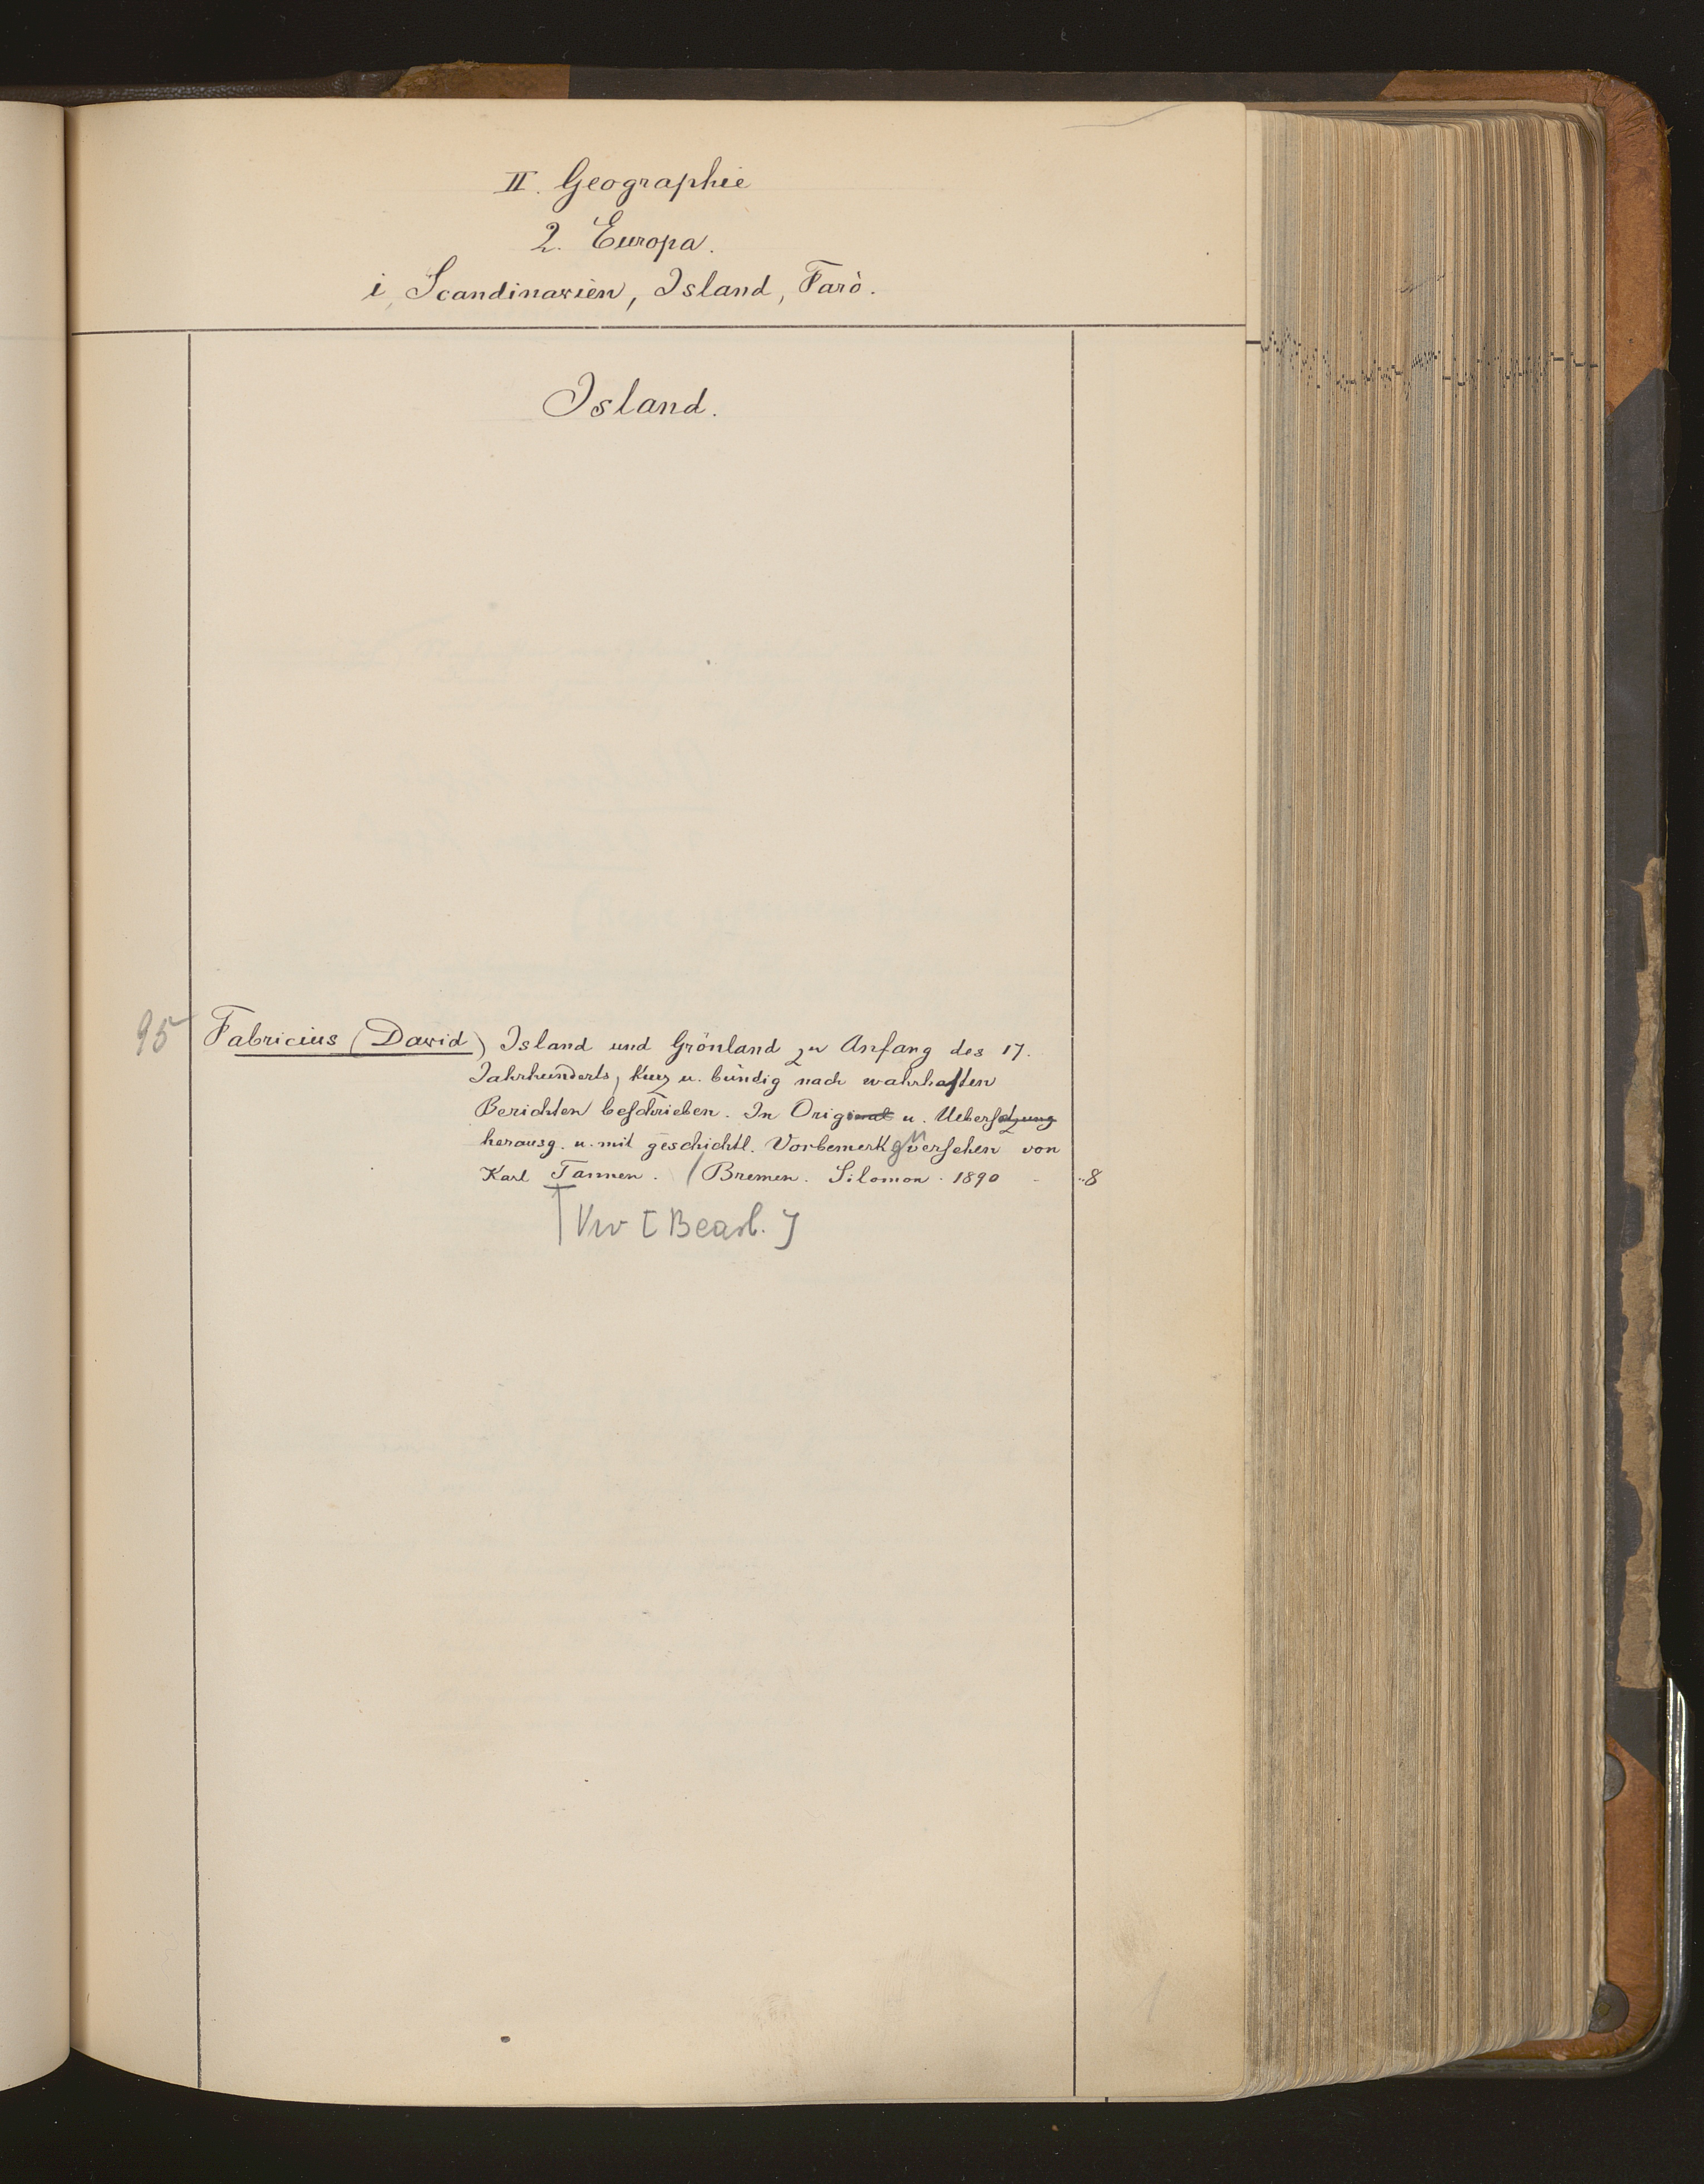 II. Geographie
2. Europa.
i, Scandinavien, Island, Farö.
Island.
95 Fabricius (David) Island und Grönland zu Anfang des 17.
Jahrhunderts, kurz u. bündig nach wahrhaften
Berichten beschrieben. In Original u. Uebersetzung
herausg. u. mit geschichtl. Vorbemerkgn versehen von
Karl Tannen. / Bremen. Silomon. 1890 8
Vw [Bearb.]